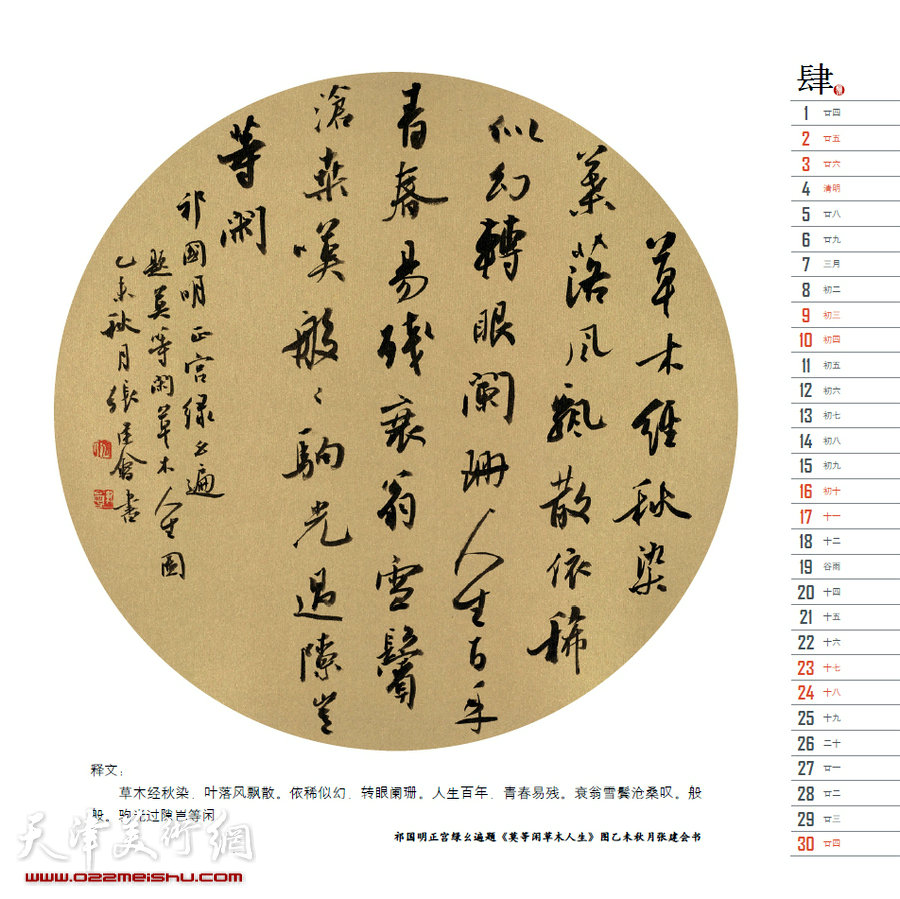 草木經秋染
葉落風飄散依稀
似幻轉眼闌珊人生百年
青春易殘衰翁雪鬢
滄桑嘆般〻駒光過隙豈
等閑
祁國明正宮綠幺遍
題莫等閑草木人生圖
乙未秋月張建會書
释文：
草木经秋染．叶落风飘散。依稀似幻．转眼阑珊。人生百年．青春易残。衰翁雪鬓沧桑叹。般
般。驹光过隙岂等闲
祁国明正宫绿幺遍题《莫等闲草木人生》图乙未秋月张建会书
天津美術網
www.022meishu.com
肆
1 廿四
2 廿五
3 廿六
4 清明
5 廿八
6 廿九
7 三月
8 初二
9 初三
10 初四
11 初五
12 初六
13 初七
14 初八
15 初九
16 初十
17 十一
18 十二
19 谷雨
20 十四
21 十五
22 十六
23 十七
24 十八
25 十九
26 二十
27 廿一
28 廿二
29 廿三
30 廿四